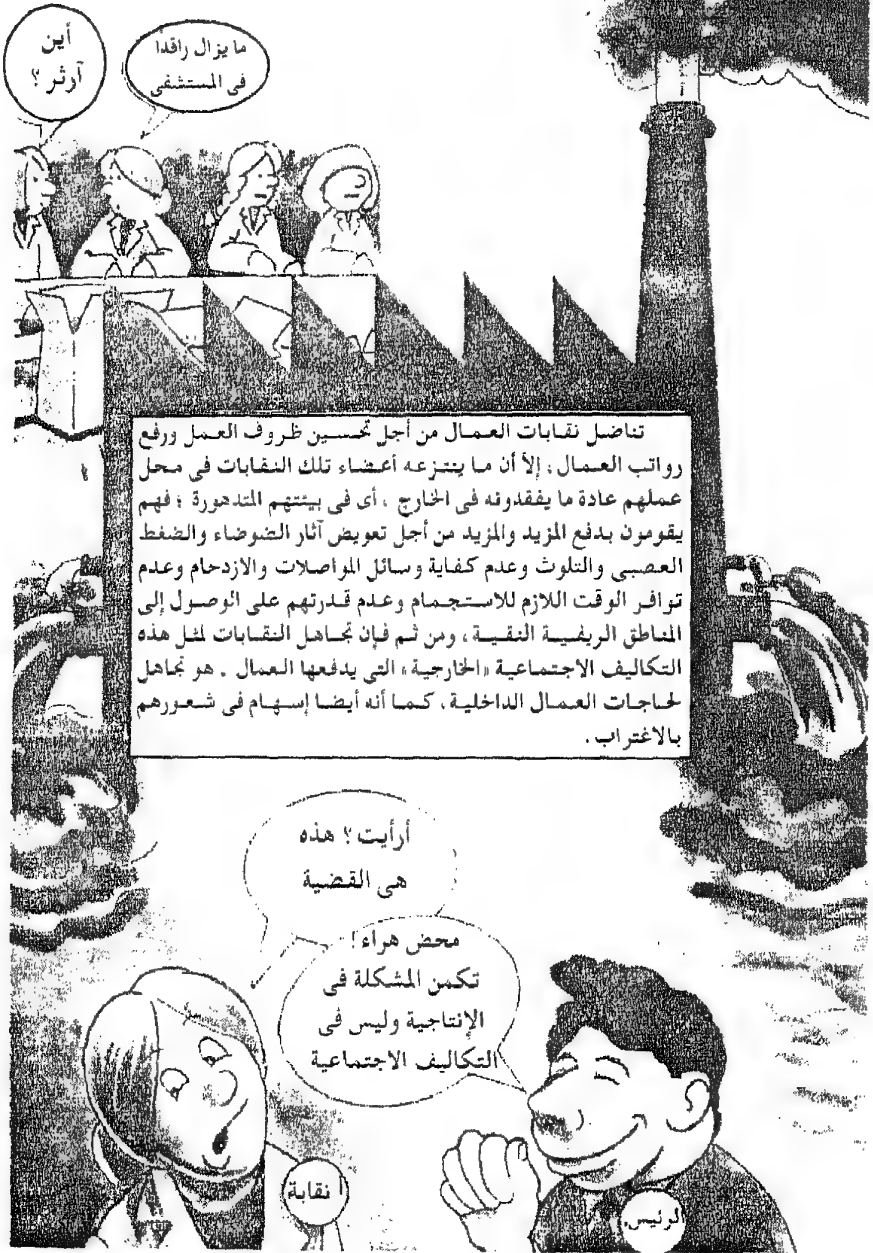 أين
آرثر ؟
ما يزال راقداً
فى المستشفى
تناضل نقابات العمال من أجل تحسين ظروف العمل ورفع
رواتب العمال ؛ إلا أن ما ينتزعه أعضاء تلك النقابات فى محل
عملهم عادة ما يفقدونه فى الخارج ، أى فى بيئتهم المتدهورة ؛ فهم
يقومون بدفع المزيد والمزيد من أجل تعويض آثار الضوضاء والضغط
العصبى والتلوث وعدم كفاية وسائل المواصلات والازدحام وعدم
توافر الوقت اللازم للاستجمام وعدم قدرتهم على الوصول إلى
المناطق الريفية النقية ، ومن ثم فإن تجاهل النقابات لمثل هذه
التكاليف الاجتماعية «الخارجية» التى يدفعها العمال . هو تجاهل
لحاجات العمال الداخلية ، كما أنه أيضا إسهام فى شعورهم
بالاغتراب .
أرأيت ؟ هذه
هى القضية
محض هراء !
تكمن المشكلة فى
الإنتاجية وليس فى
التكاليف الاجتماعية
نقابة
الرئيس